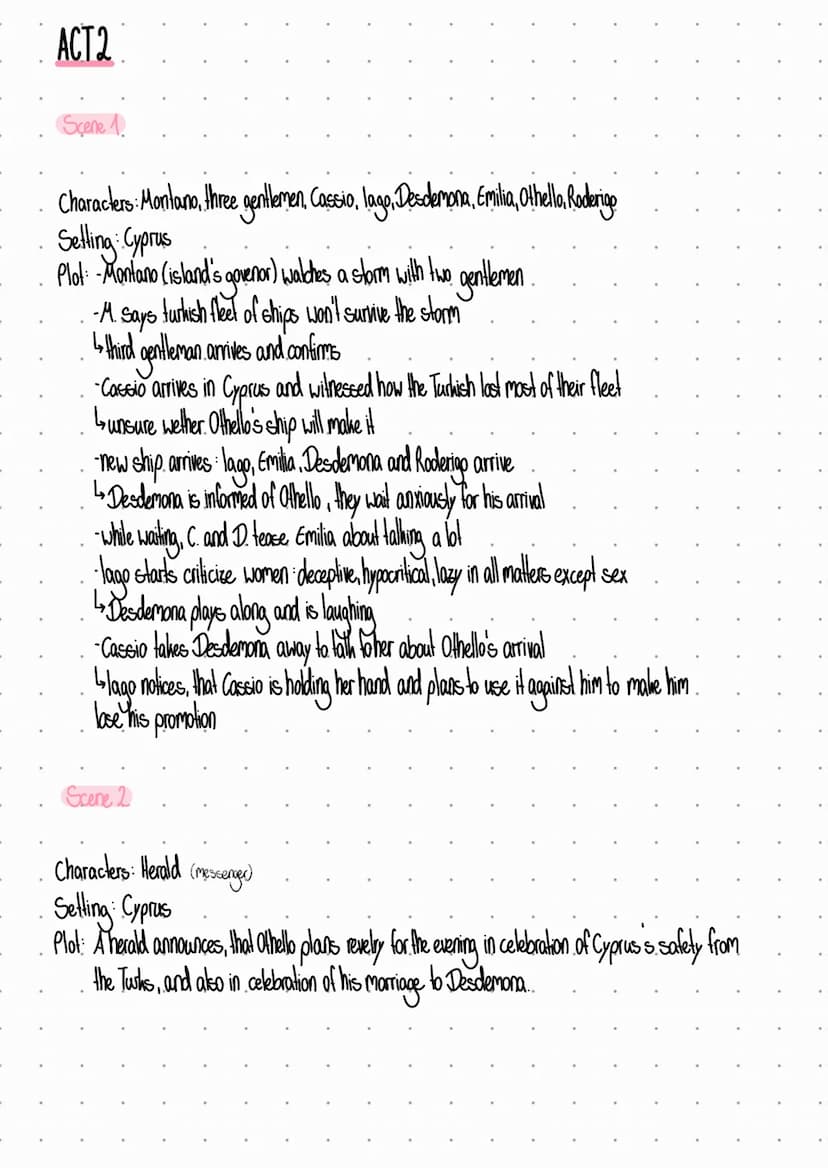 ACT 2
Scene 1
Characters: Montano, three gentlemen, Cassio, Iago, Desdemona, Emilia, Othello, Roderigo
Setting: Cyprus
Plot: -Montano (island's govenor) watches a storm with two gentlemen
-M. says turkish fleet of ships won't survive the storm
↳ third gentleman arrives and confirms
-Cassio arrives in Cyprus and witnessed how the Turkish lost most of their fleet
↳ unsure wether Othello's ship will make it
-new ship arrives: Iago, Emilia, Desdemona and Roderigo arrive
↳ Desdemona is informed of Othello, they wait anxiously for his arrival
-while waiting, C. and D. tease Emilia about talking a lot
-Iago starts criticize women: deceptive, hypocritical, lazy in all matters except sex
↳ Desdemona plays along and is laughing
-Cassio takes Desdemona away to talk to her about Othello's arrival
↳ Iago notices, that Cassio is holding her hand and plans to use it against him to make him
lose his promotion
Scene 2
Characters: Herald (messenger)
Setting: Cyprus
Plot: A herald announces, that Othello plans revelry for the evening in celebration of Cyprus's safety from
the Turks, and also in celebration of his marriage to Desdemona.